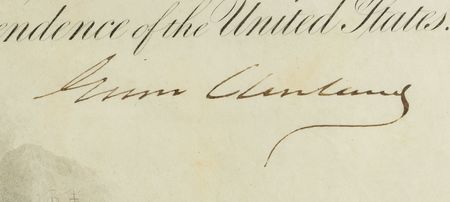 endence of the United States.
Grover Cleveland